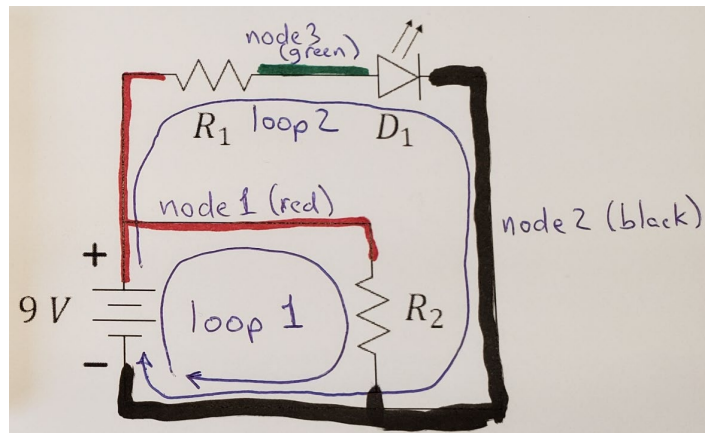 node 3
(green)
R1 loop 2 D1
node 1 (red)
node 2 (black)
+
9 V
loop 1
R2
−